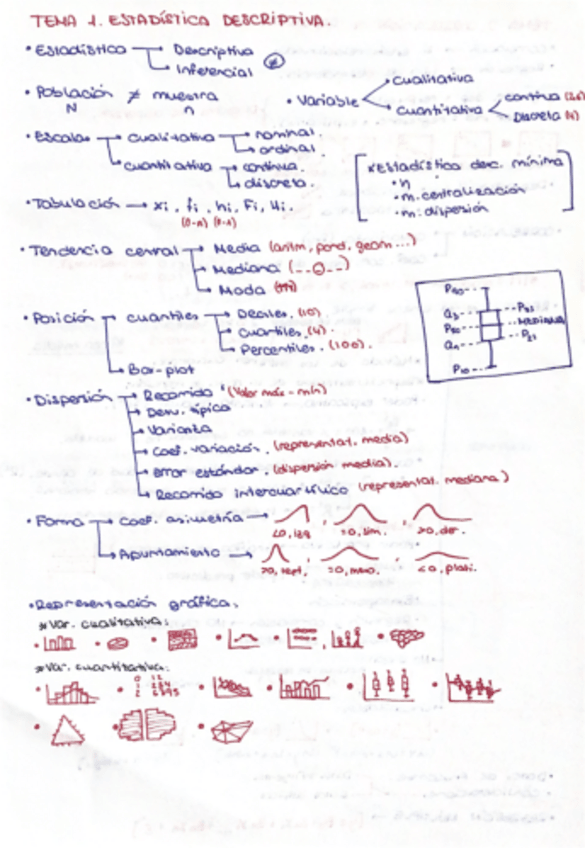 TEMA 1. ESTADÍSTICA DESCRIPTIVA.
• Estadística → Descriptiva
→ Inferencial
• Población ≠ muestra
N n
• Variable → cualitativa
→ cuantitativa → continua
→ Discreta
• Escalas → cualitativa → nominal.
→ ordinal.
→ cuantitativa → continua.
→ discreta.
[*Estadística desc. mínima
• n
• m. centralización
• m. dispersión]
• Tabulación → xi, fi, hi, Fi, Hi.
• Tendencia central → Media (aritm, pond, geom...)
→ Mediana
→ Moda
• Posición → cuantiles → Deciles. (10)
→ Cuartiles. (4)
→ Percentiles. (100).
→ Box-plot
P90
Q3 P75
P50 MEDIANA
Q1 P25
P10
• Dispersión → Recorrido (Valor máx - mín)
→ Desv. típica
→ Varianza
→ Coef. variación. (representat. media)
→ error estándar. (dispersión media).
→ Recorrido intercuartílico (representat. mediana)
• Forma → Coef. asimetría →
<0, izq =0, sim. >0, der.
→ Apuntamiento →
>0, lept, =0, meso, <0, plati.
• Representación gráfica.
*Var. cualitativa:
*Var. cuantitativa: